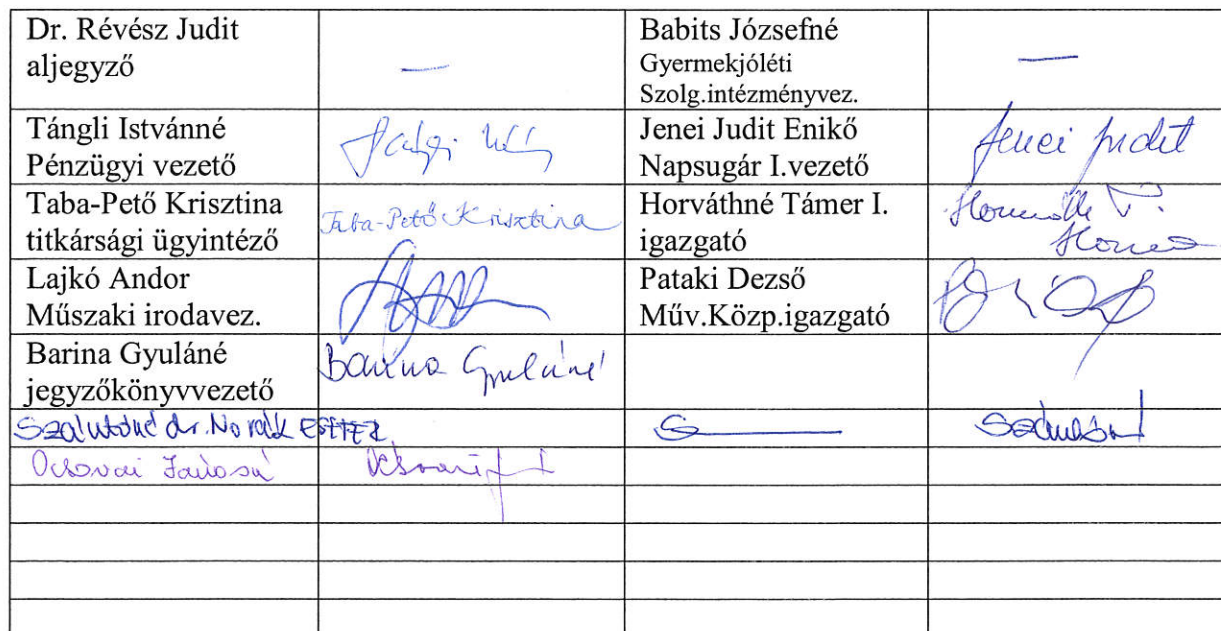 Dr. Révész Judit
aljegyző
—
Babits Józsefné
Gyermekjóléti
Szolg.intézményvez.
—
Tángli Istvánné
Pénzügyi vezető
Jenei Judit Enikő
Napsugár I.vezető
Jenei Judit
Taba-Pető Krisztina
titkársági ügyintéző
Taba-Pető Krisztina
Horváthné Támer I.
igazgató
Lajkó Andor
Műszaki irodavez.
Pataki Dezső
Műv.Közp.igazgató
Barina Gyuláné
jegyzőkönyvvezető
Barina Gyuláné
dr. Novák Eszter